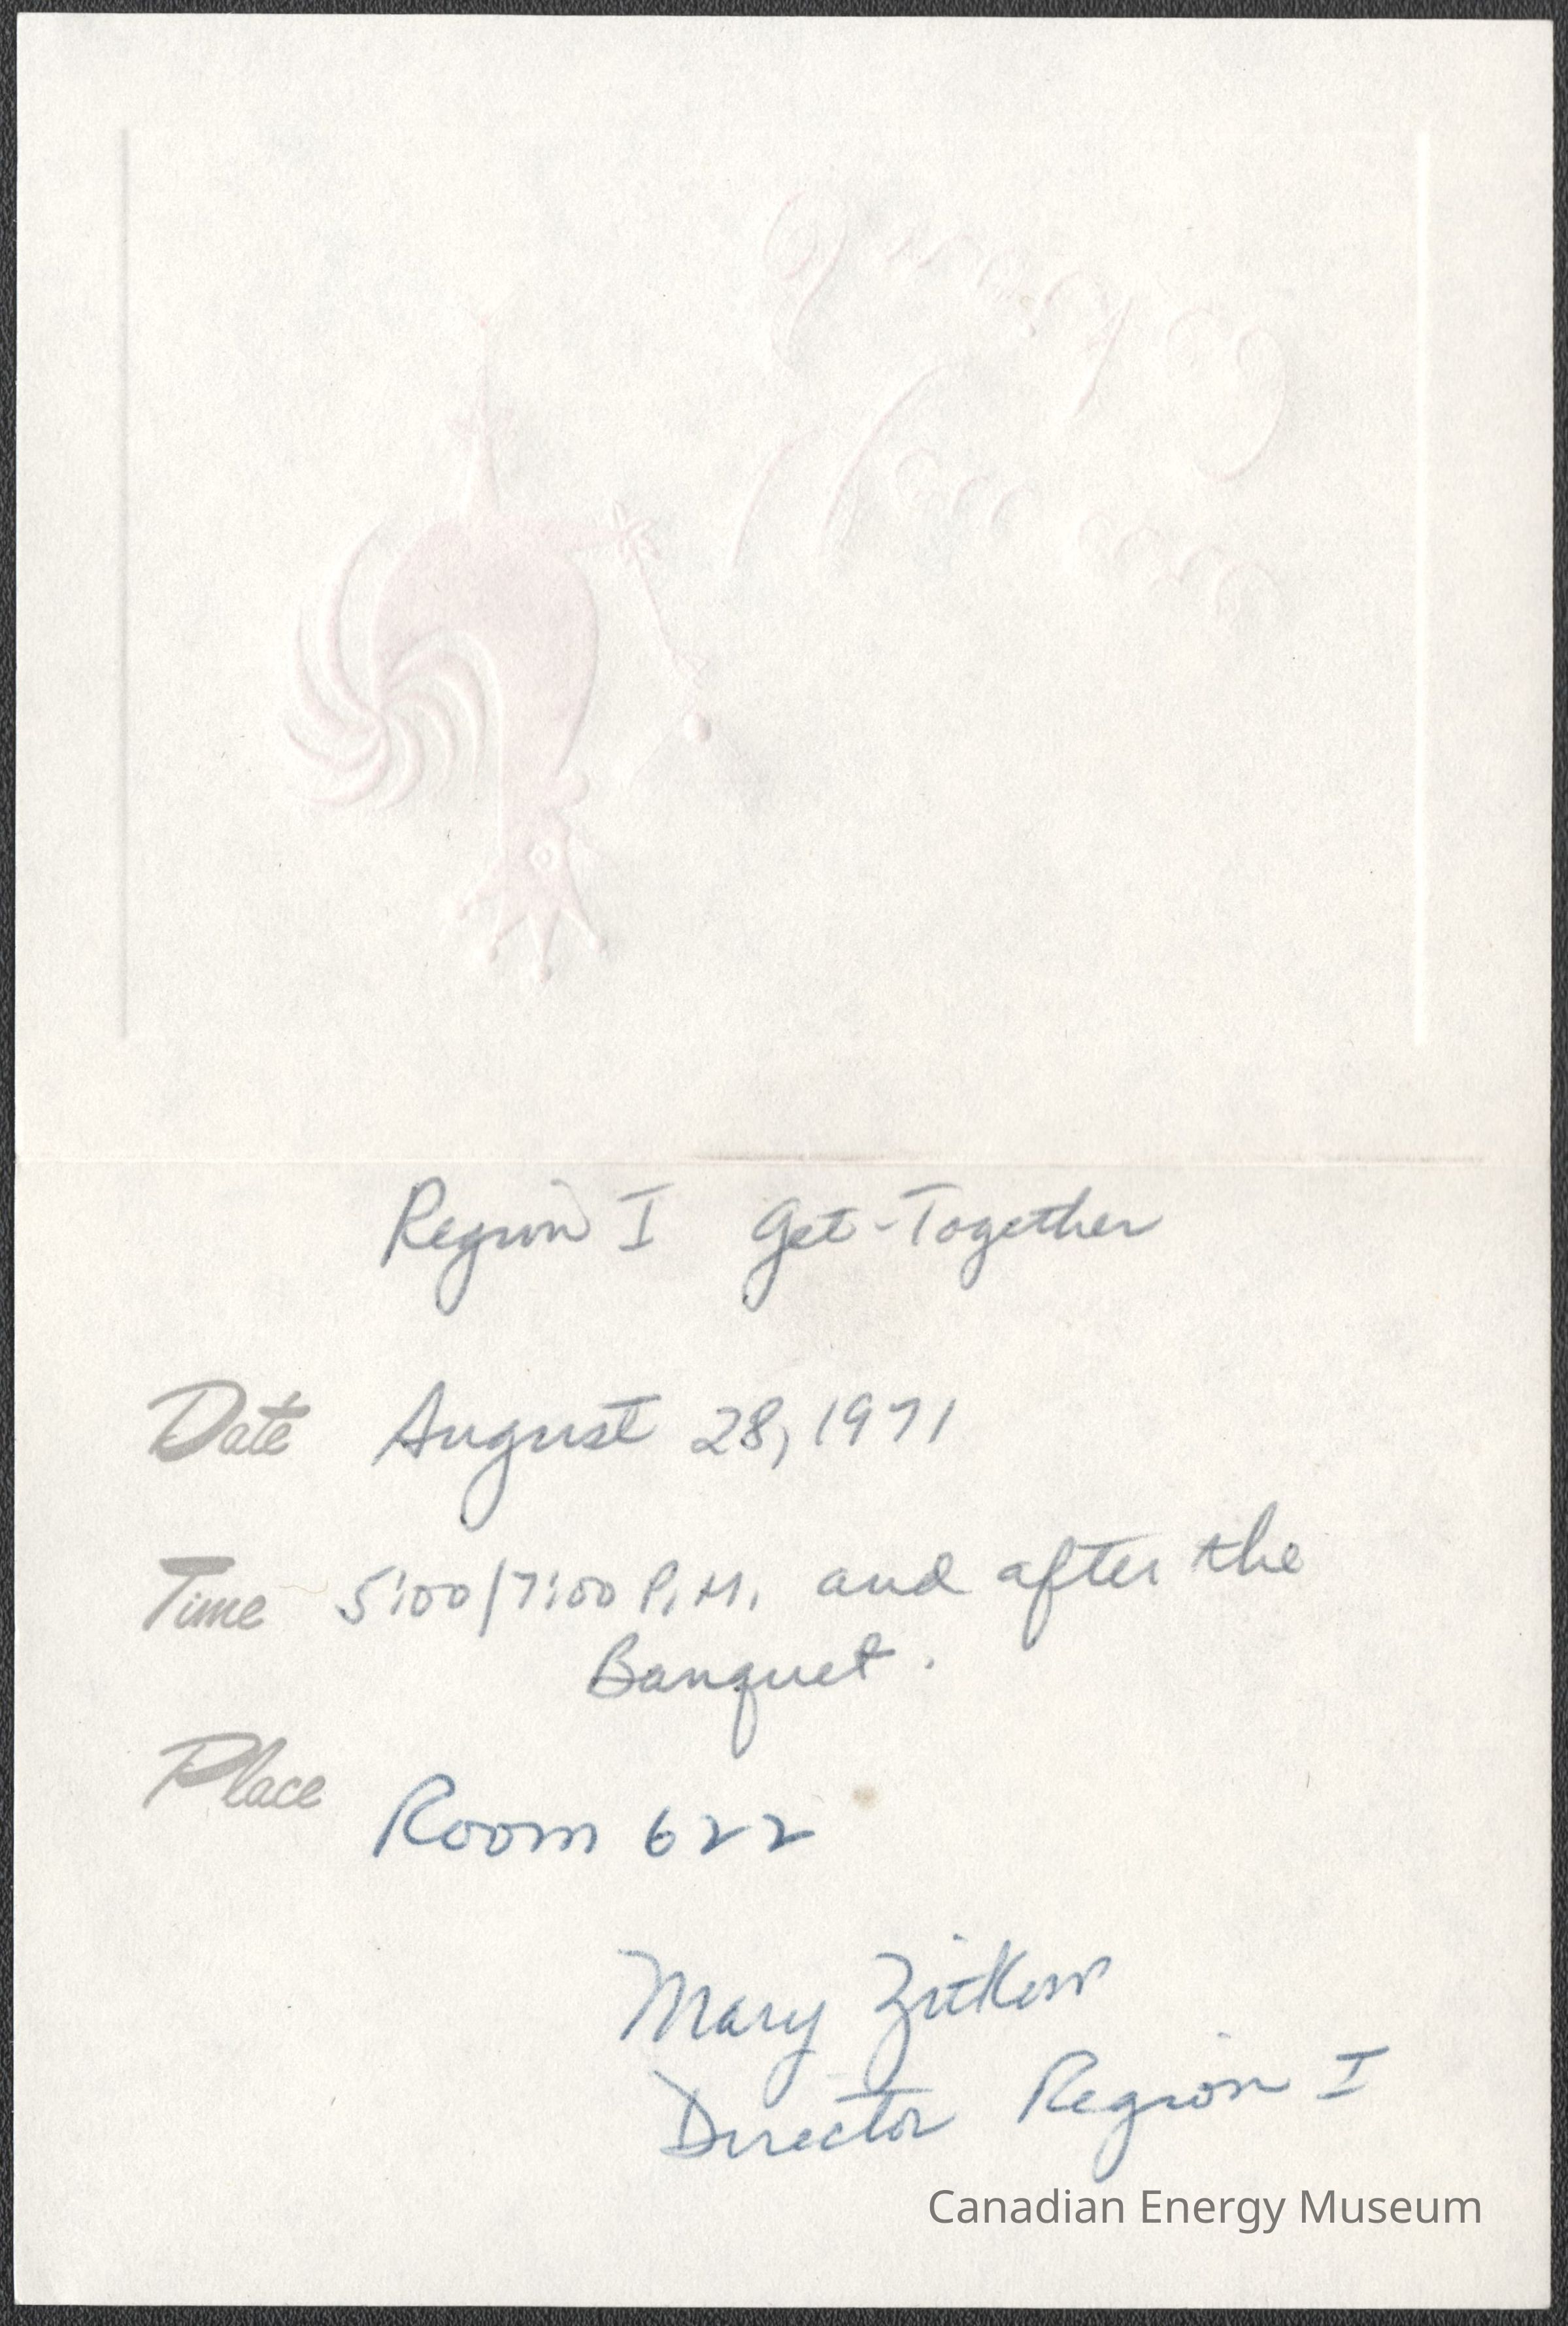 Region I Get-Together
Date August 28, 1971
Time 5:00/7:00 P.M. and after the
Banquet.
Place Room 622
Mary
Director Region I
Canadian Energy Museum